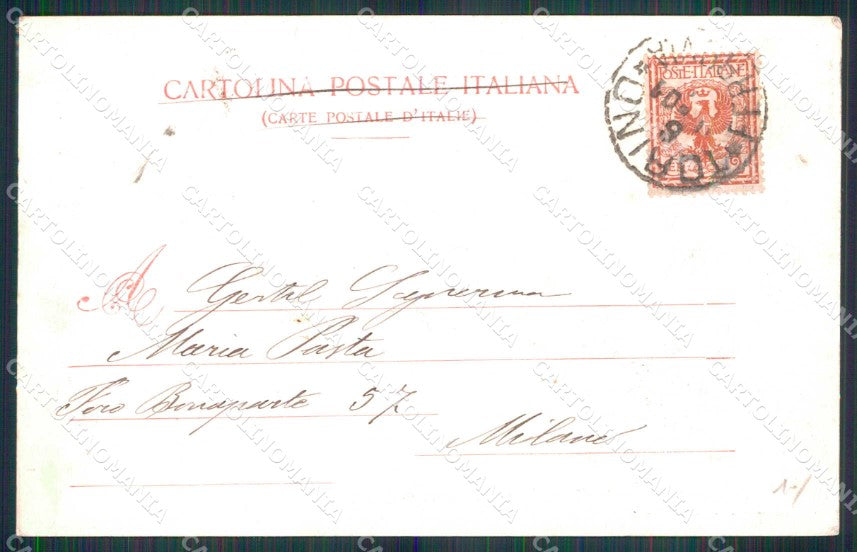 CARTOLINA POSTALE ITALIANA
(CARTE POSTALE D'ITALIE)
POSTE ITALIANE
TORINO
A
Gentil Signorina
Maria Pasta
Foro Bonaparte 57
Milano
CARTOLINOMANIA